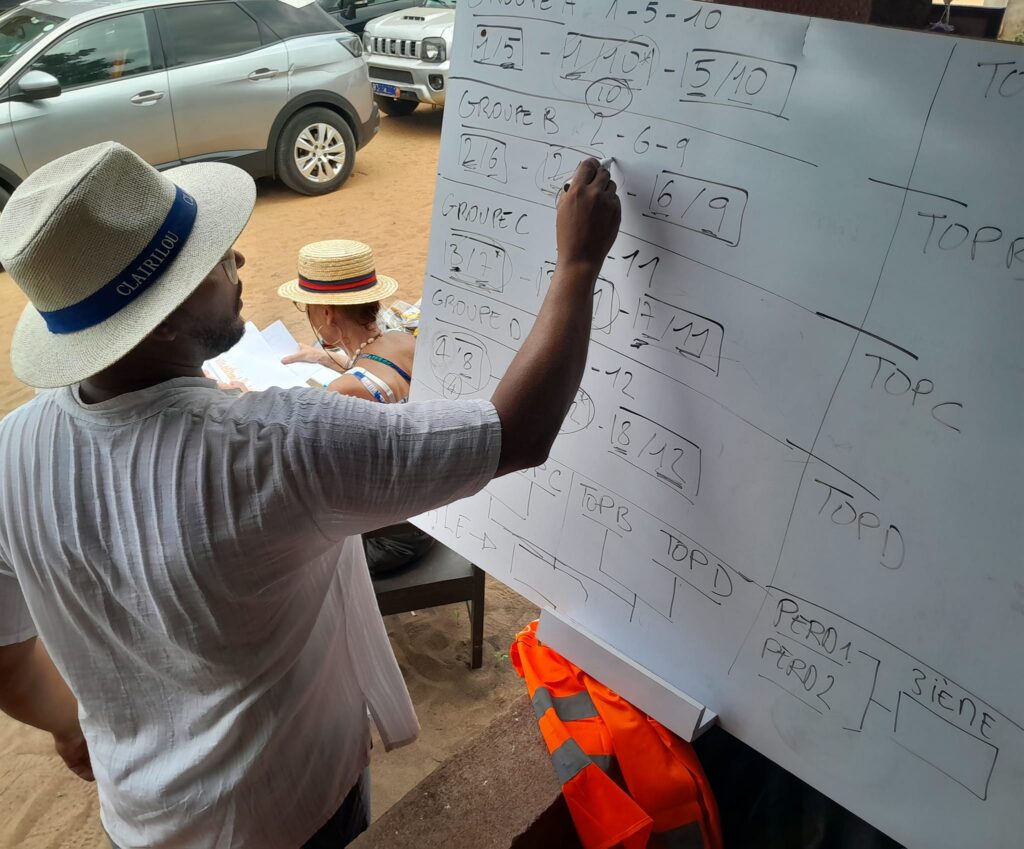 GROUPE A 1-5-10
1/5 - 1/10 - 5/10
10
GROUPE B 2-6-9
2/6 - 2 - 6/9
GROUPE C -11
3/7 - - 7/11
GROUPE D -12
4/8 - 8/12
4
TOP B
TOP D
TOP C
TOP D
PERD1
PERD2
3IÈME
CLAIRILOU